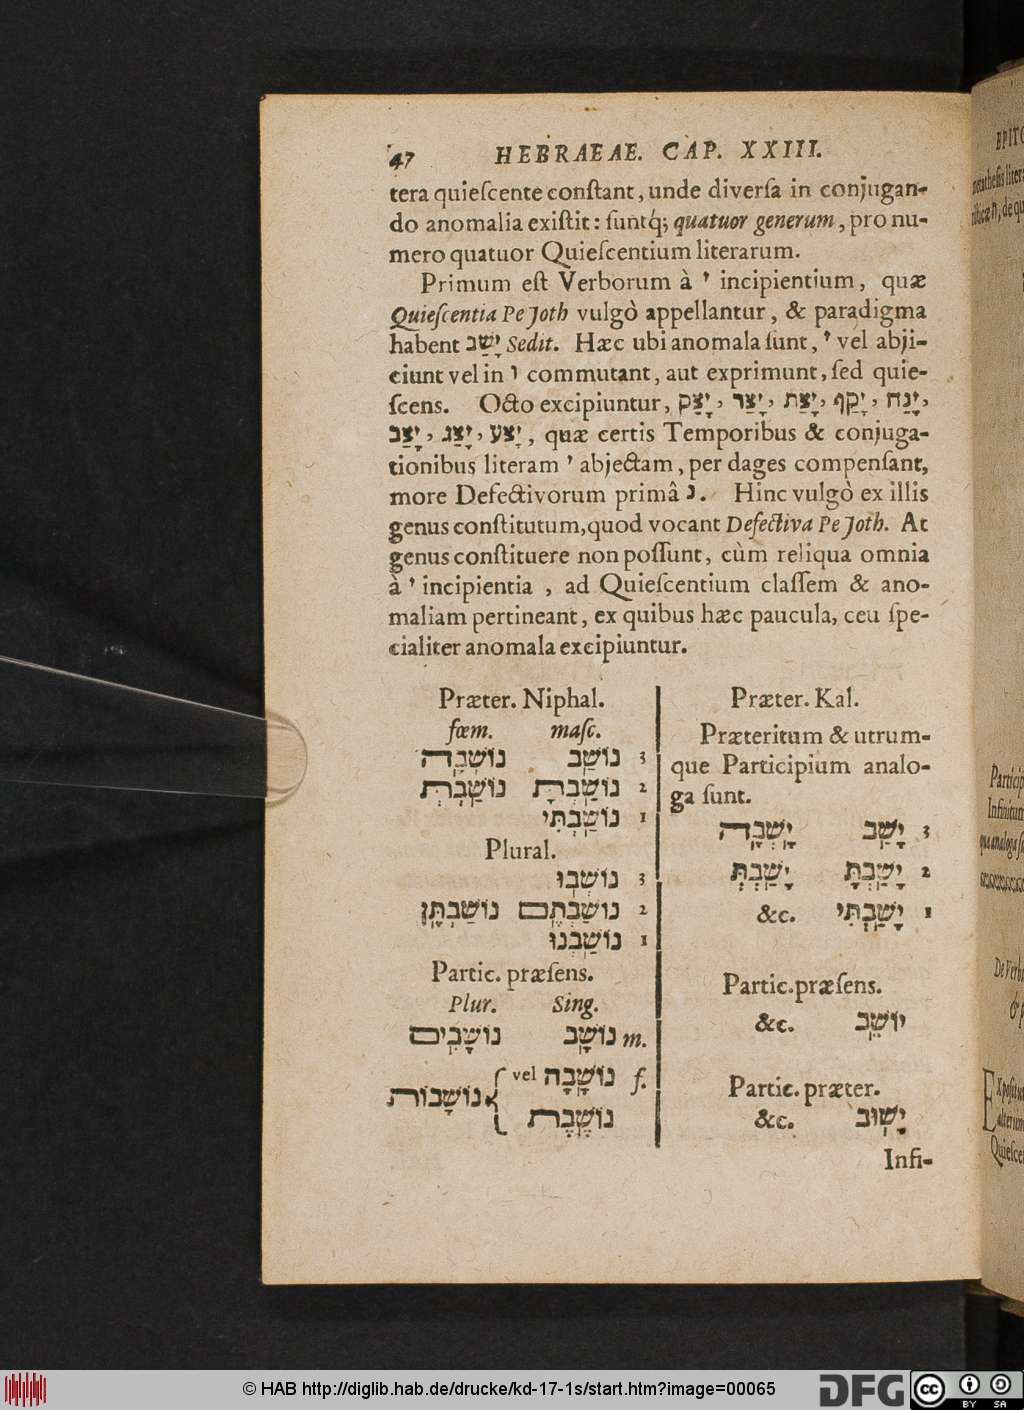 47 HEBRAEAE. CAP. XXIII.
tera quieſcente conſtant, unde diverſa in conjugan-
do anomalia exiſtit: ſuntq́; quatuor generum, pro nu-
mero quatuor Quieſcentium literarum.
Primum eſt Verborum à י incipientium, quæ
Quieſcentia Pe Joth vulgò appellantur, & paradigma
habent יָשַׁב Sedit. Hæc ubi anomala ſunt, י vel abji-
ciunt vel in ו commutant, aut exprimunt, ſed quie-
ſcens. Octo excipiuntur, יָנַח, יָקַף, יָצַת, יָצַר, יָצַק,
יָצַע, יָצַג, יָצַב, quæ certis Temporibus & conjuga-
tionibus literam י abjectam, per dages compenſant,
more Defectivorum primâ נ. Hinc vulgò ex illis
genus conſtitutum, quod vocant Defectiva Pe Joth. At
genus conſtituere non poſſunt, cùm reliqua omnia
à י incipientia, ad Quieſcentium claſſem & ano-
maliam pertineant, ex quibus hæc paucula, ceu ſpe-
cialiter anomala excipiuntur.
Præter. Niphal.
fœm. maſc.
3 נוֹשַׁב נוֹשְׁבָה
2 נוֹשַׁבְתָּ נוֹשַׁבְתְּ
1 נוֹשַׁבְתִּי
Plural.
3 נוֹשְׁבוּ
2 נוֹשַׁבְתֶּם נוֹשַׁבְתֶּן
1 נוֹשַׁבְנוּ
Partic. præſens.
Plur. Sing.
m. נוֹשָׁב נוֹשָׁבִים
f. נוֹשָׁבָה vel
נוֹשֶׁבֶת נוֹשָׁבוֹת
Præter. Kal.
Præteritum & utrum-
que Participium analo-
ga ſunt.
3 יָשַׁב יָשְׁבָה
2 יָשַׁבְתָּ יָשַׁבְתְּ
1 יָשַׁבְתִּי &c.
Partic. præſens.
יוֹשֵׁב &c.
Partic. præter.
יָשׁוּב &c.
Infi-
© HAB http://diglib.hab.de/drucke/kd-17-1s/start.htm?image=00065
DFG
cc BY SA